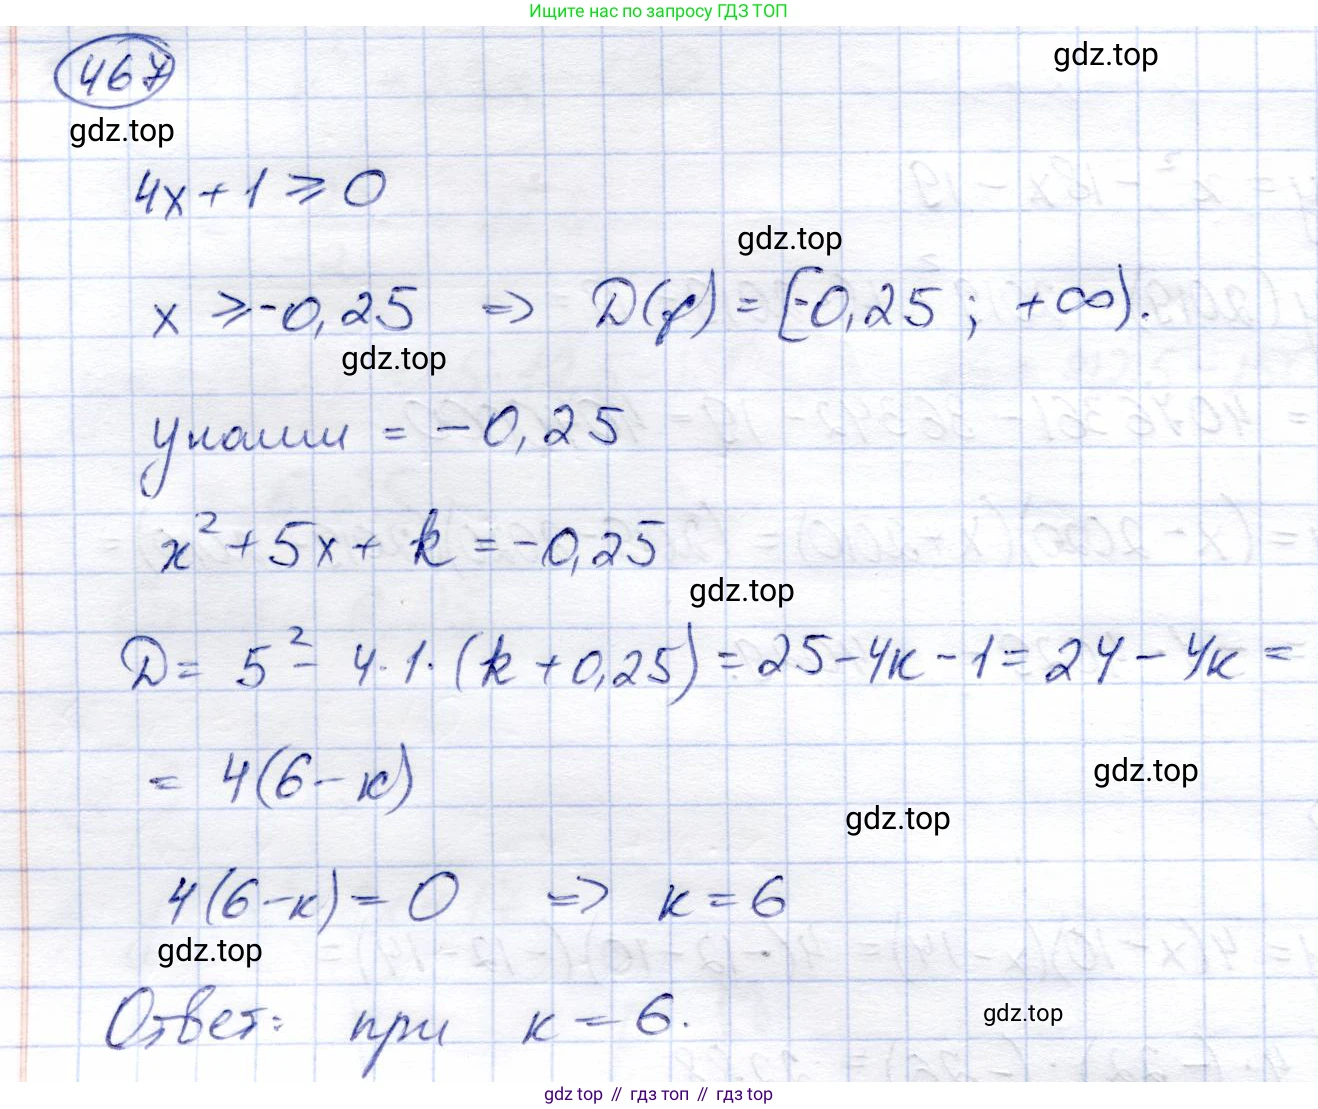 Ищите нас по запросу ГДЗ ТОП
467
gdz.top
gdz.top
4x + 1 ⩾ 0
gdz.top
x ⩾ -0,25 => D(y) = [-0,25 ; +∞).
gdz.top
yнаим = -0,25
x² + 5x + k = -0,25
gdz.top
D = 5² - 4·1·(k + 0,25) = 25 - 4k - 1 = 24 - 4k =
= 4(6 - k)
gdz.top
gdz.top
4(6 - k) = 0 => k = 6
gdz.top
Ответ: при k = 6.
gdz.top
gdz top // гдз топ // gdz top